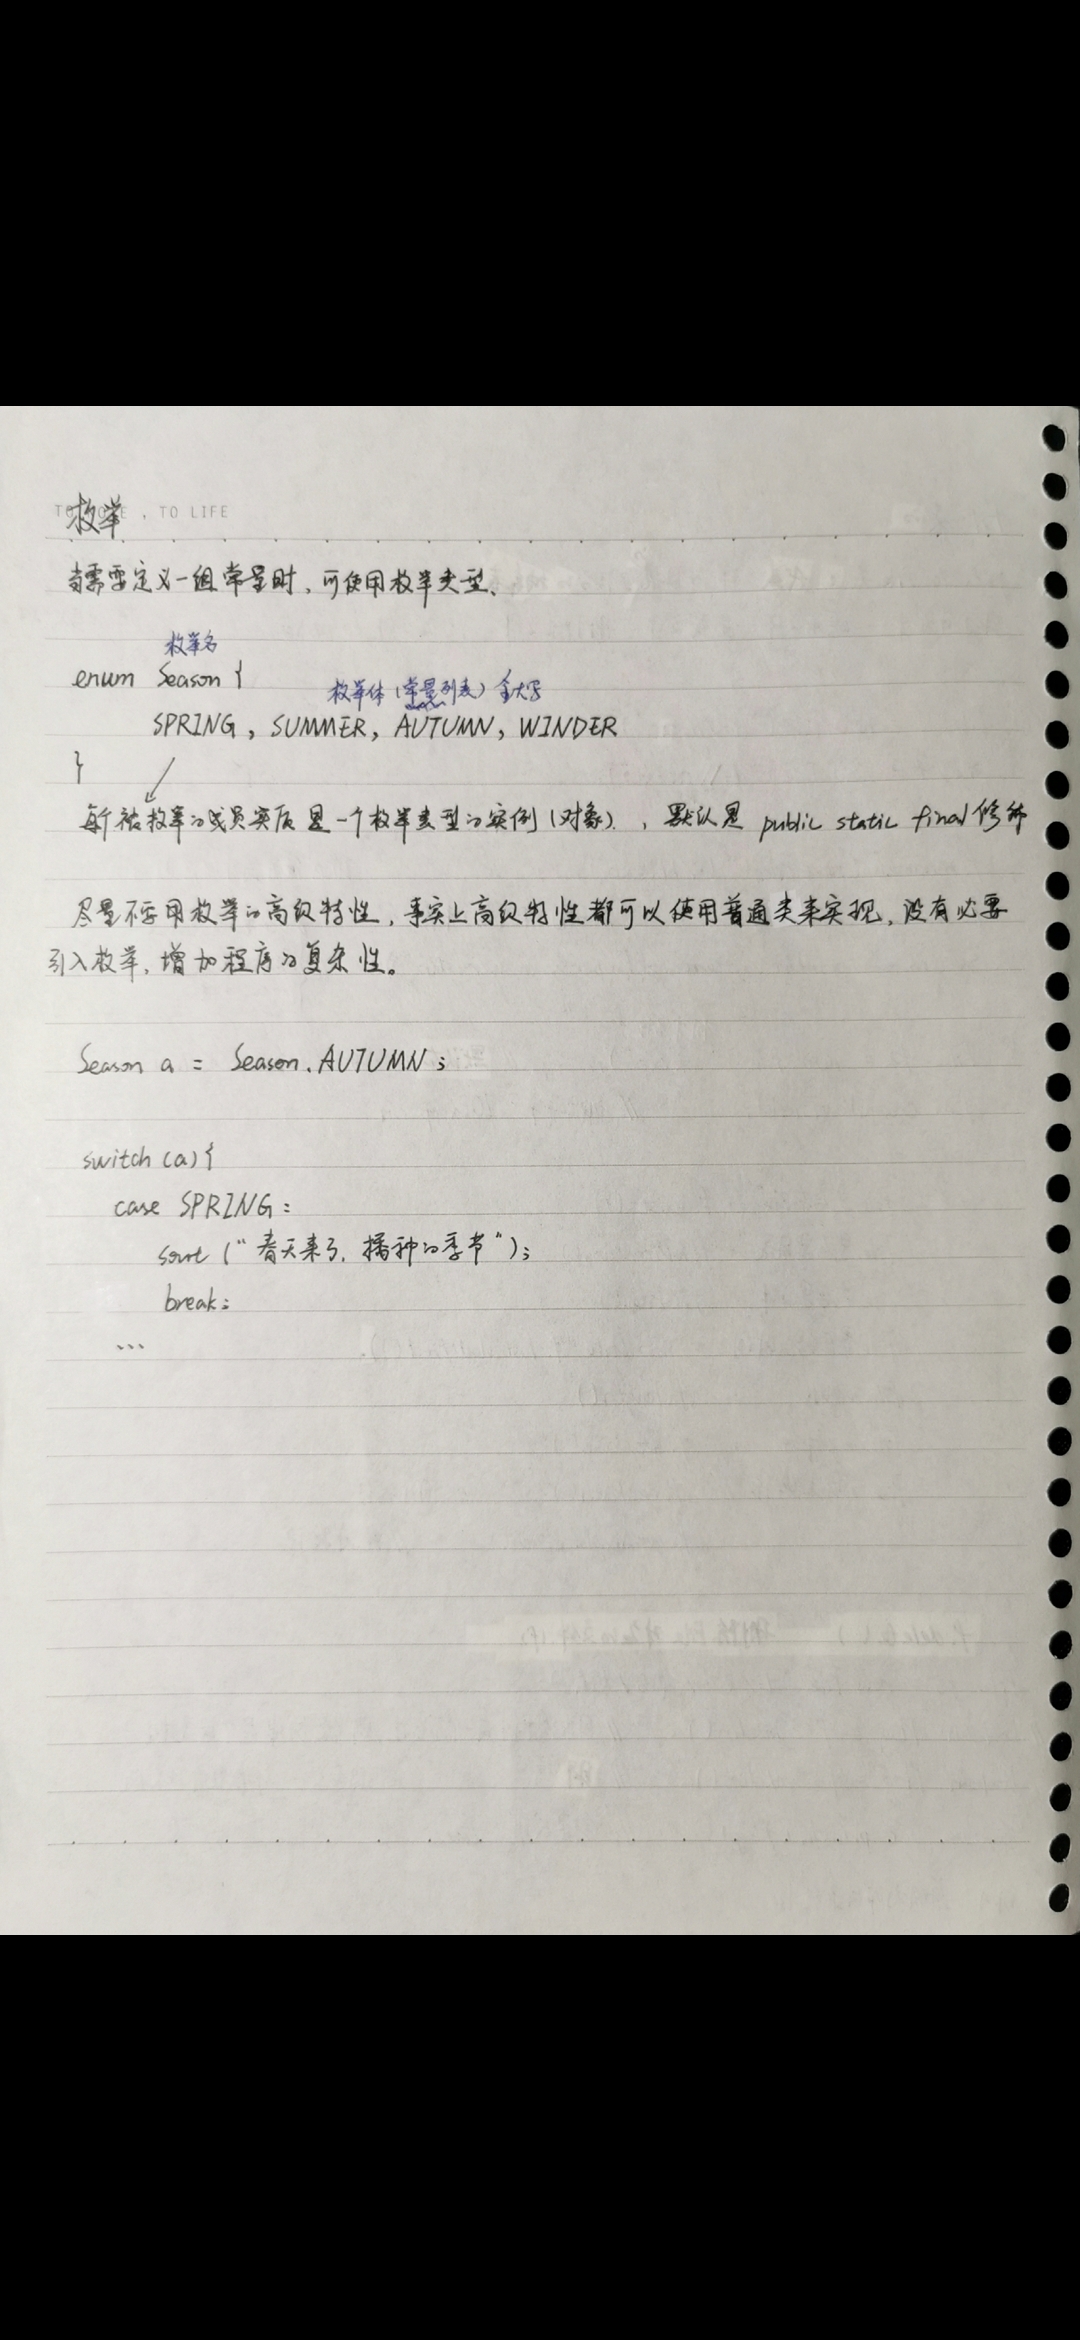 枚举
, TO LIFE
当需要定义一组常量时，可使用枚举类型、
枚举名
enum Season {
枚举体（常量列表）全大写
SPRING, SUMMER, AUTUMN, WINDER
}
每个被枚举的成员实质是一个枚举类型的实例（对象），默认是 public static final 修饰
尽量不要用枚举的高级特性，事实上高级特性都可以使用普通类来实现，没有必要
引入枚举，增加程序的复杂性。
Season a = Season.AUTUMN;
switch (a) {
case SPRING:
sout ("春天来了，播种的季节");
break;
...